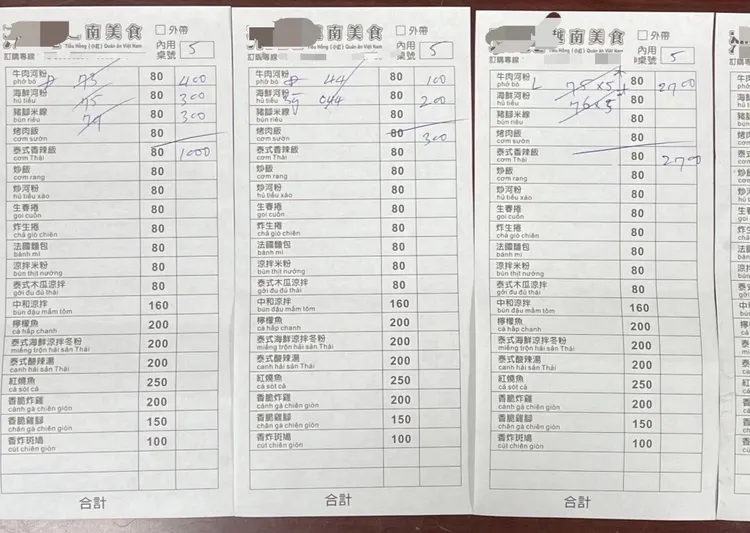 南美食
Tiểu Hồng (小紅) Quán ăn Việt Nam
訂購專線
□外帶
內用
桌號
5
牛肉河粉 73 80 400
phở bò
海鮮河粉 75 80 300
hủ tiếu
豬腳米線 79 80 300
bún riêu
烤肉飯 80
cơm sườn
泰式香辣飯 80 1000
cơm Thái
炒飯 80
cơm rang
炒河粉 80
hủ tiếu xào
生春捲 80
gỏi cuốn
炸生捲 80
chả giò chiên
法國麵包 80
bánh mì
涼拌米粉 80
bún thịt nướng
泰式木瓜涼拌 80
gởi đu đủ thái
中和涼拌 160
bún đậu mắm tôm
檸檬魚 200
cá hấp chanh
泰式海鮮涼拌冬粉 200
miếng trộn hải sản Thái
泰式酸辣湯 200
canh hải sản Thái
紅燒魚 250
cá sốt cà
香脆炸雞 200
cánh gà chiên giòn
香脆雞腳 150
chân gà chiên giòn
香炸斑鳩 100
cút chiên giòn
合計
南美食
Tiểu Hồng (小紅) Quán ăn Việt Nam
訂購專線
□外帶
內用
桌號
5
牛肉河粉 44 80 100
phở bò
海鮮河粉 044 80 200
hủ tiếu
豬腳米線 80
bún riêu
烤肉飯 80 300
cơm sườn
泰式香辣飯 80
cơm Thái
炒飯 80
cơm rang
炒河粉 80
hủ tiếu xào
生春捲 80
gỏi cuốn
炸生捲 80
chả giò chiên
法國麵包 80
bánh mì
涼拌米粉 80
bún thịt nướng
泰式木瓜涼拌 80
gởi đu đủ thái
中和涼拌 160
bún đậu mắm tôm
檸檬魚 200
cá hấp chanh
泰式海鮮涼拌冬粉 200
miếng trộn hải sản Thái
泰式酸辣湯 200
canh hải sản Thái
紅燒魚 250
cá sốt cà
香脆炸雞 200
cánh gà chiên giòn
香脆雞腳 150
chân gà chiên giòn
香炸斑鳩 100
cút chiên giòn
合計
越南美食
Tiểu Hồng (小紅) Quán ăn Việt Nam
訂購專線
□外帶
內用
桌號
5
牛肉河粉 L 75×5 80 2700
phở bò
海鮮河粉 76×5 80
hủ tiếu
豬腳米線 80
bún riêu
烤肉飯 80
cơm sườn
泰式香辣飯 80 2700
cơm Thái
炒飯 80
cơm rang
炒河粉 80
hủ tiếu xào
生春捲 80
gỏi cuốn
炸生捲 80
chả giò chiên
法國麵包 80
bánh mì
涼拌米粉 80
bún thịt nướng
泰式木瓜涼拌 80
gởi đu đủ thái
中和涼拌 160
bún đậu mắm tôm
檸檬魚 200
cá hấp chanh
泰式海鮮涼拌冬粉 200
miếng trộn hải sản Thái
泰式酸辣湯 200
canh hải sản Thái
紅燒魚 250
cá sốt cà
香脆炸雞 200
cánh gà chiên giòn
香脆雞腳 150
chân gà chiên giòn
香炸斑鳩 100
cút chiên giòn
合計